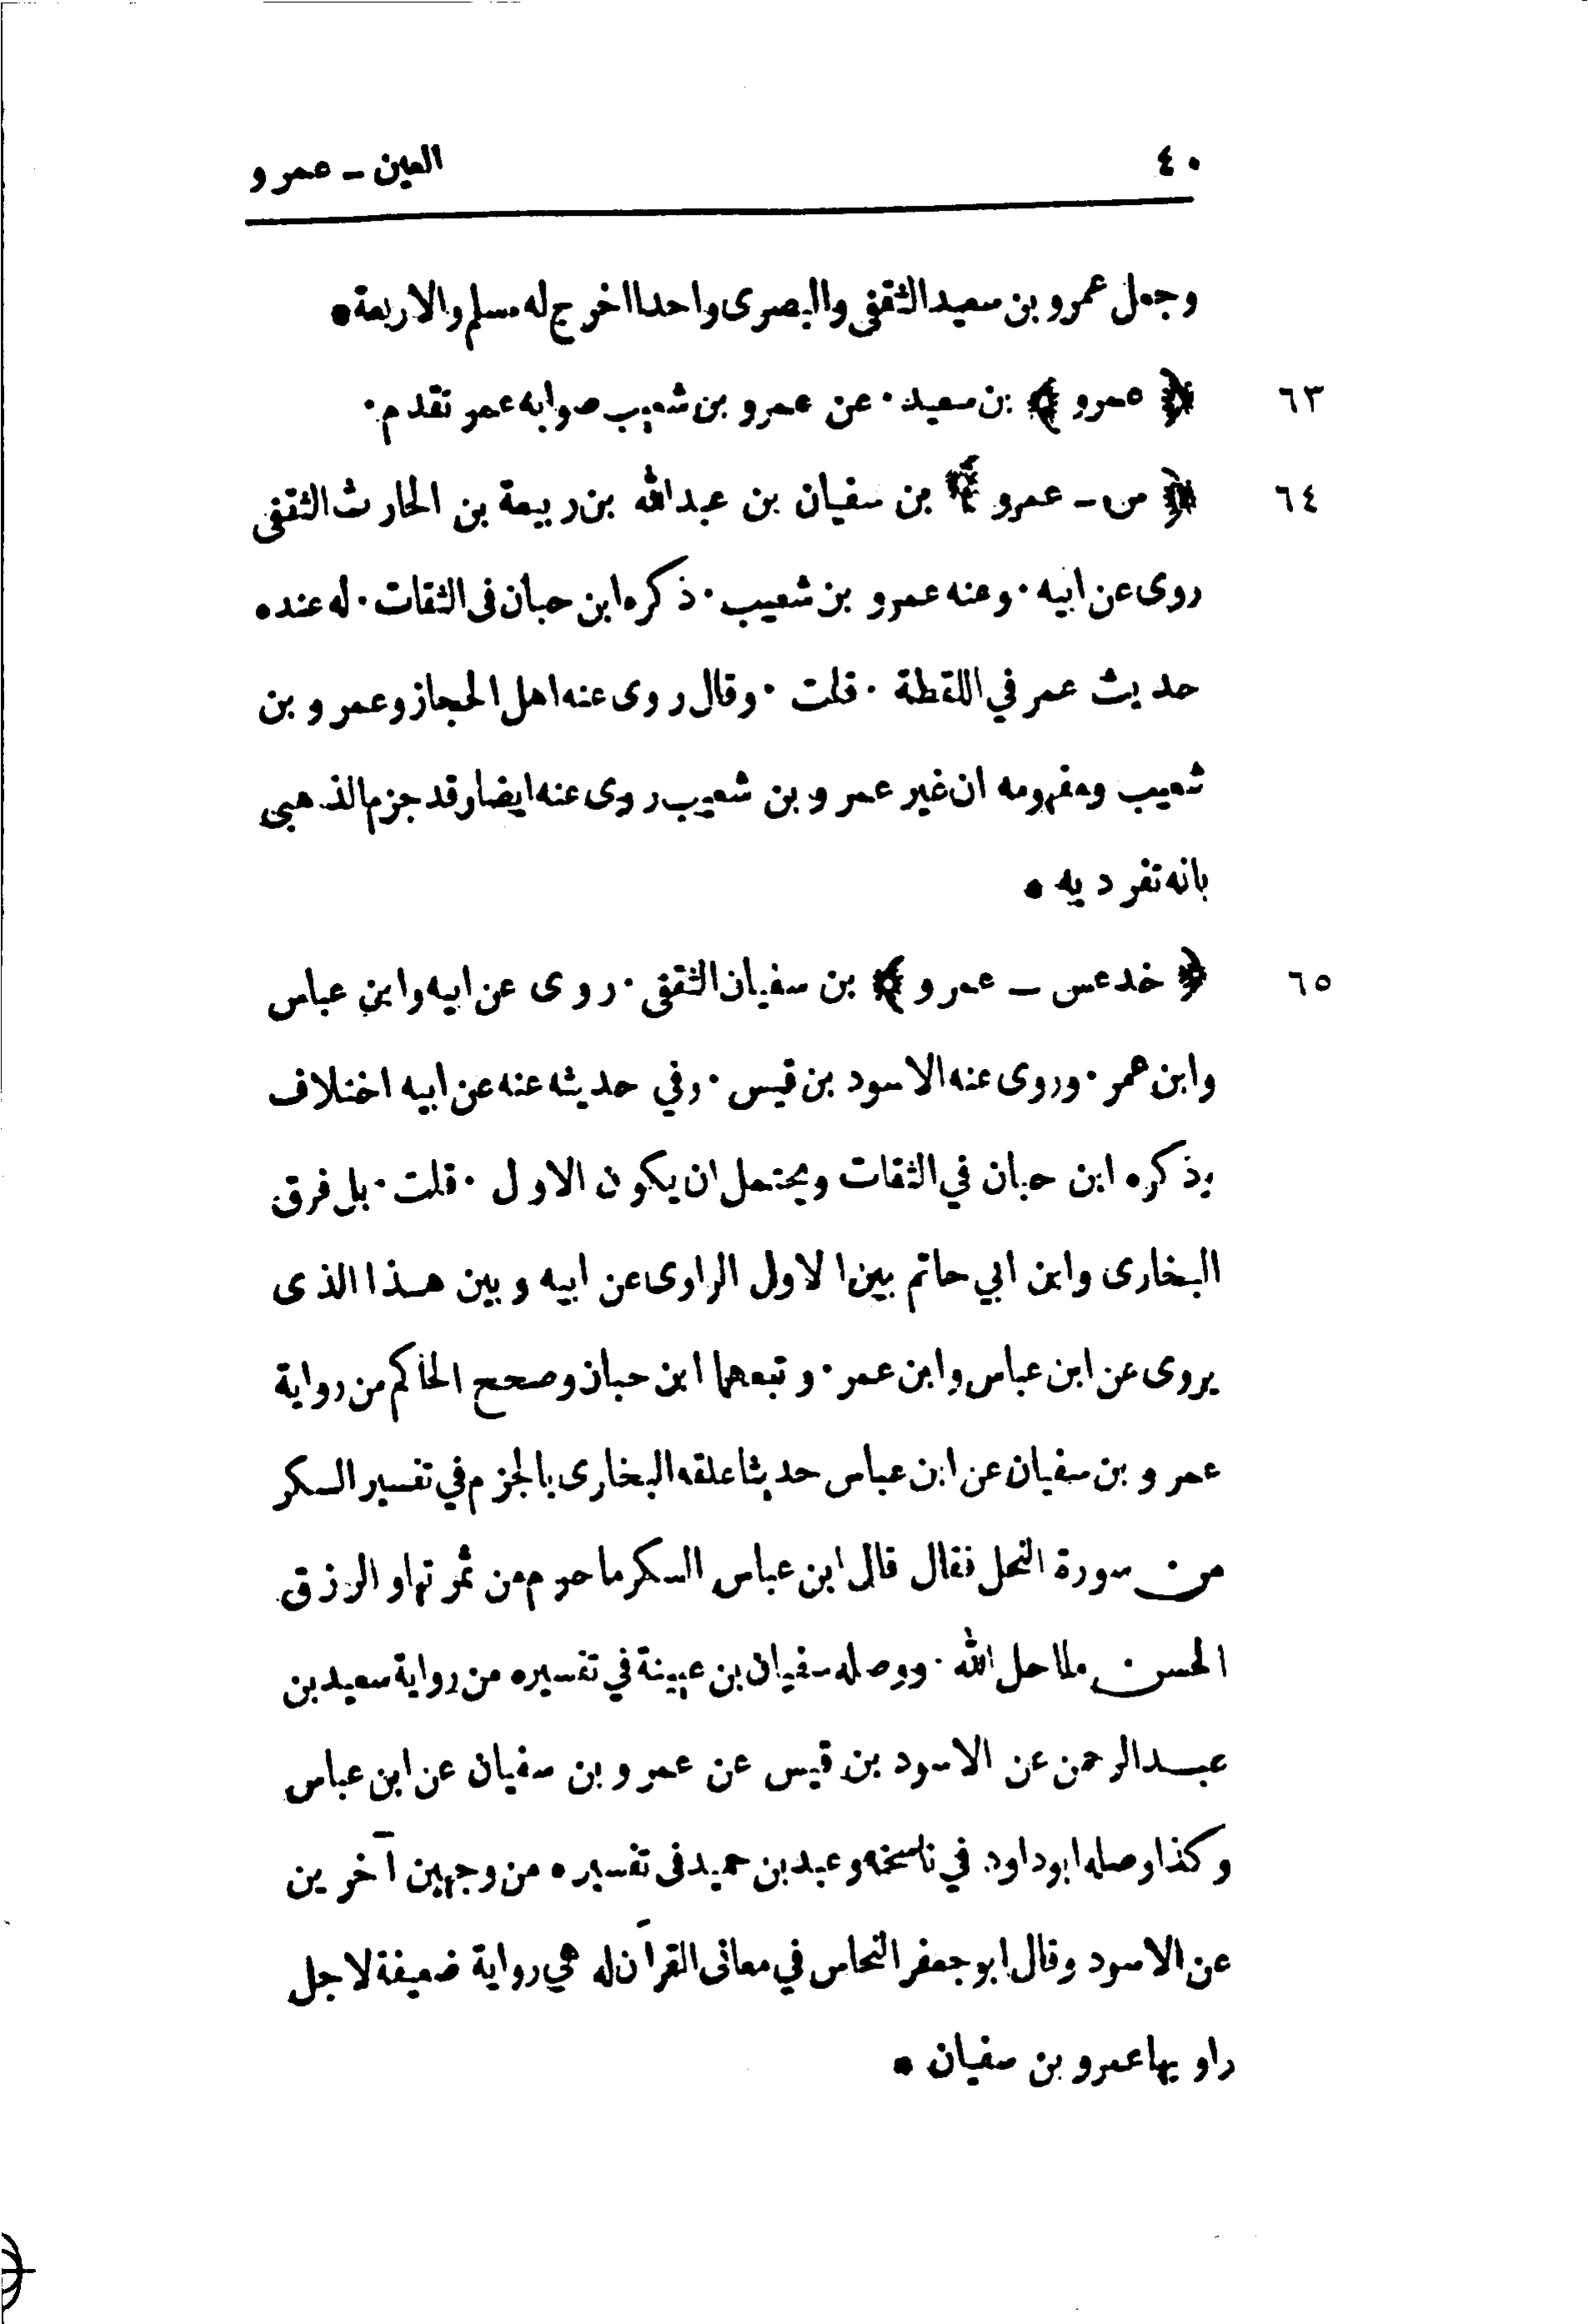 ٤٠ العين ــ عمرو
وجعل عمرو بن سعيد الثقفى والبصرى واحدا اخرج له مسلم والاربعة ●
٦٣ ﴿ عمرو ﴾ بن سعيد · عن عمرو بن شعيب صوابه عمر تقدم ·
٦٤ ﴿ س ــ عمرو ﴾ بن سفيان بن عبدالله بن ربيعة بن الحارث الثقفى
روى عن ابيه · وعنه عمرو بن شعيب · ذكره ابن حبان فى الثقات · له عنده
حديث عمر في اللقطة · قلت · وقال روى عنه اهل الحجاز وعمرو بن
شعيب ومفهومه ان غير عمرو بن شعيب روى عنه ايضا وقد جزم الذهبى
بانه تفرد به ●
٦٥ ﴿ خد عس ــ عمرو ﴾ بن سفيان الثقفى · روى عن ابيه وابن عباس
وابن عمر · وروى عنه الاسود بن قيس · وفي حديثه عنه عن ابيه اختلاف
يذكره ابن حبان في الثقات ويحتمل ان يكون الاول · قلت · بل فرق
البخارى وابن ابي حاتم بين الاول الراوى عن ابيه وبين هذا الذى
يروى عن ابن عباس وابن عمر · وتبعهما ابن حبان وصحح الحاكم من رواية
عمرو بن سفيان عن ابن عباس حديثا علقه البخارى بالجزم في تفسير السكر
من سورة النحل فقال قال ابن عباس السكر ما حرم من ثمرتها والرزق
الحسن ما احل الله · ووصله سفيان بن عيينة في تفسيره من رواية سعيد بن
عبد الرحمن عن الاسود بن قيس عن عمرو بن سفيان عن ابن عباس
وكذا وصله ابوداود في ناسخه وعبد بن حميد فى تفسيره من وجهين آخرين
عن الاسود وقال ابو جعفر النحاس في معانى القرآن له هي رواية ضعيفة لاجل
راويها عمرو بن سفيان ●